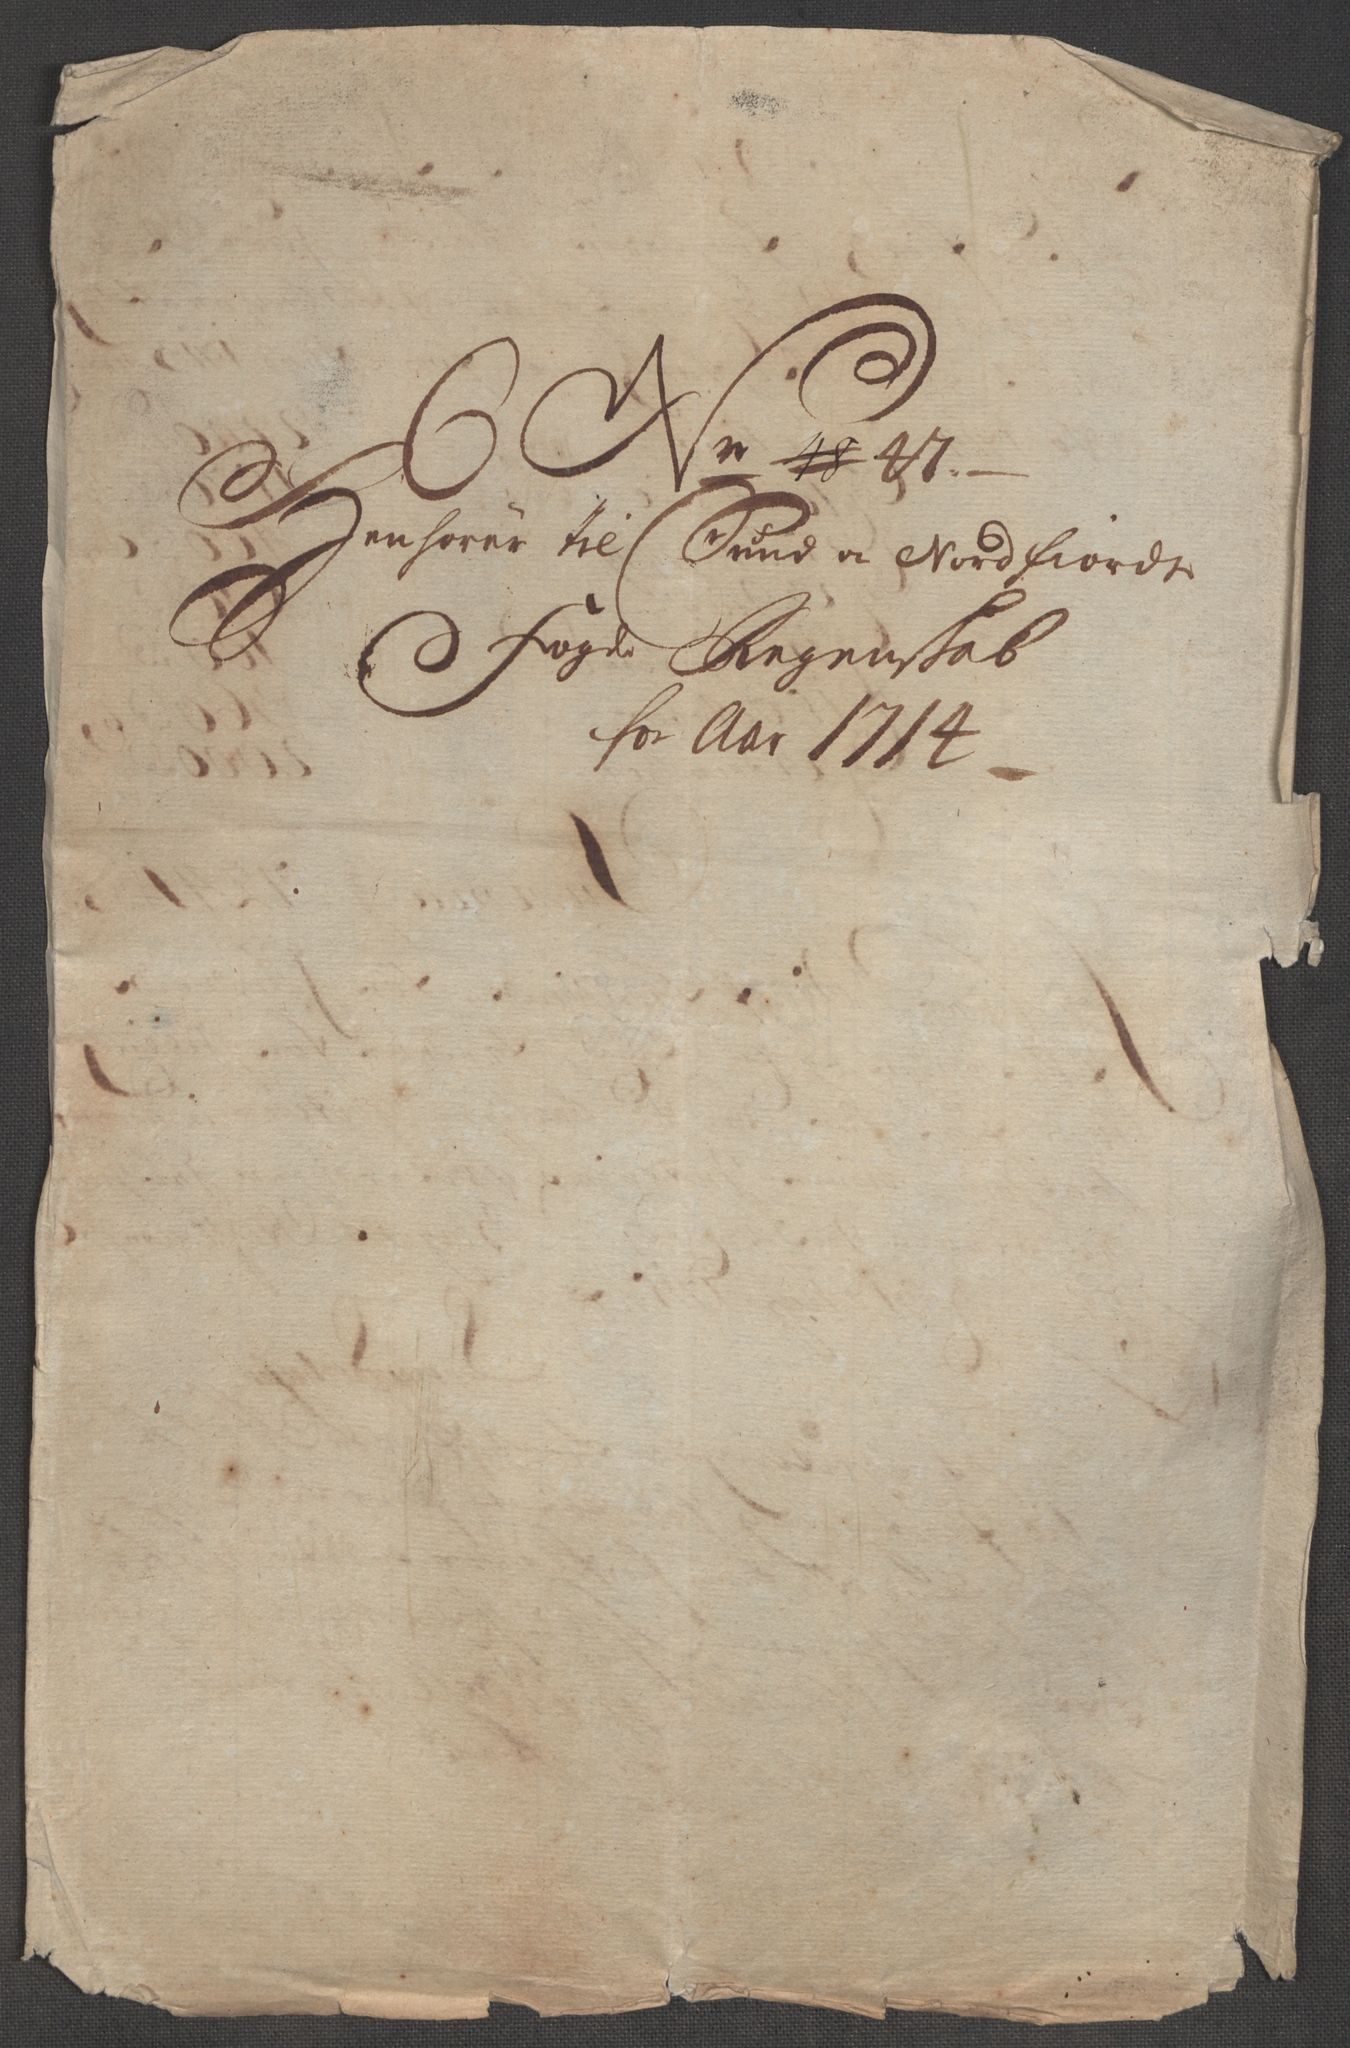 No 48 47.
Henhører til Sund og Nordfiords
Fogde Regenskab
for Aar 1714